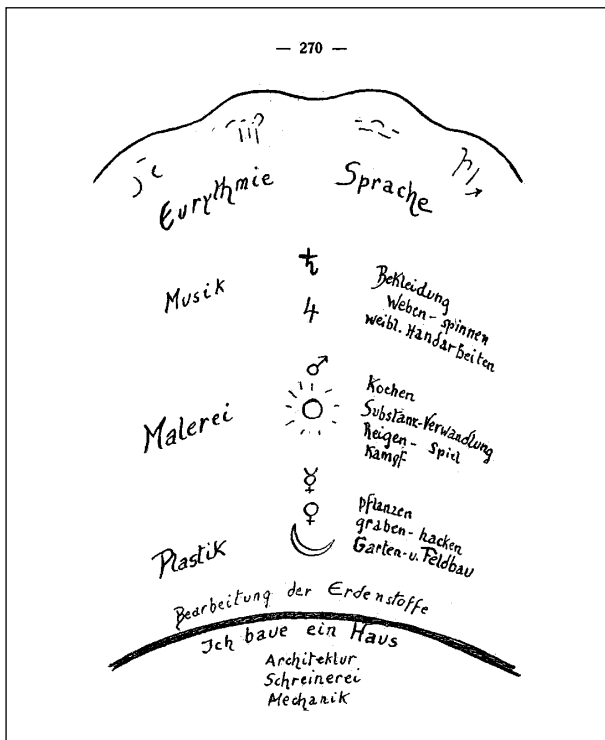 — 270 —
Eurythmie
Sprache
Musik
♄
♃
Bekleidung
Weben - spinnen
weibl. Handarbeiten
♂
Malerei
Kochen
Substanz-Verwandlung
Reigen - Spiel
Kampf
☿
♀
Plastik
pflanzen
graben - hacken
Garten- u. Feldbau
Bearbeitung der Erdenstoffe
Ich baue ein Haus
Architektur
Schreinerei
Mechanik